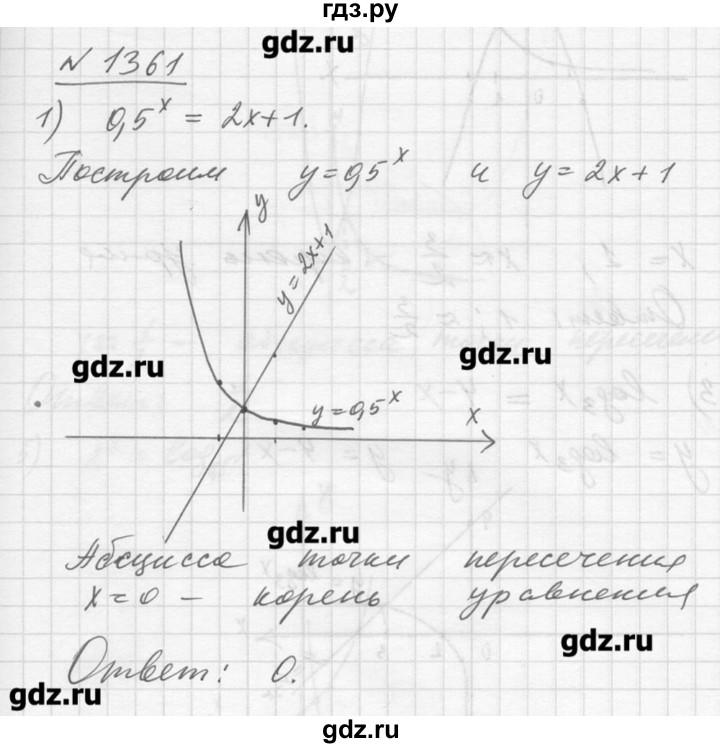 гдз.ру
gdz.ru
№ 1361
1) 0,5^x = 2x+1.
Построим y=0,5^x и y=2x+1
y
y=2x+1
gdz.ru
gdz.ru
y=0,5^x
x
gdz.ru
Абсцисса точки пересечения
x=0 – корень уравнения
gdz.ru
Ответ: 0.
gdz.ru
gdz.ru